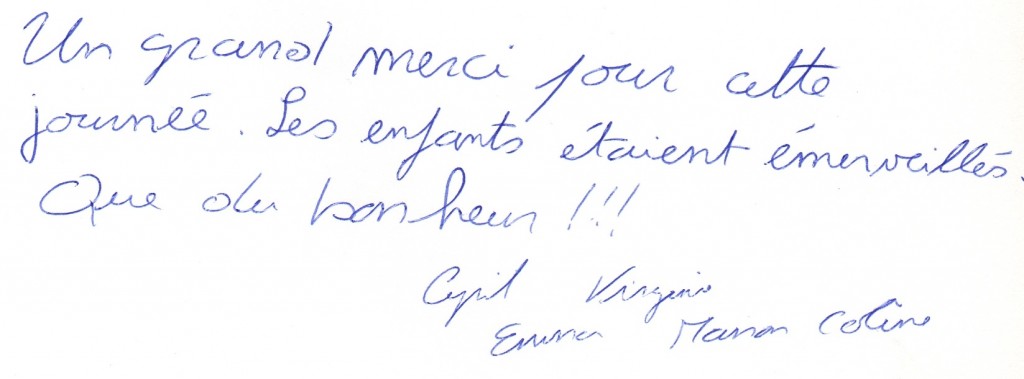 Un grand merci pour cette
journée. Les enfants étaient émerveillés.
Que du bonheur !!!
Cyril Virginie
Emma Manon Coline